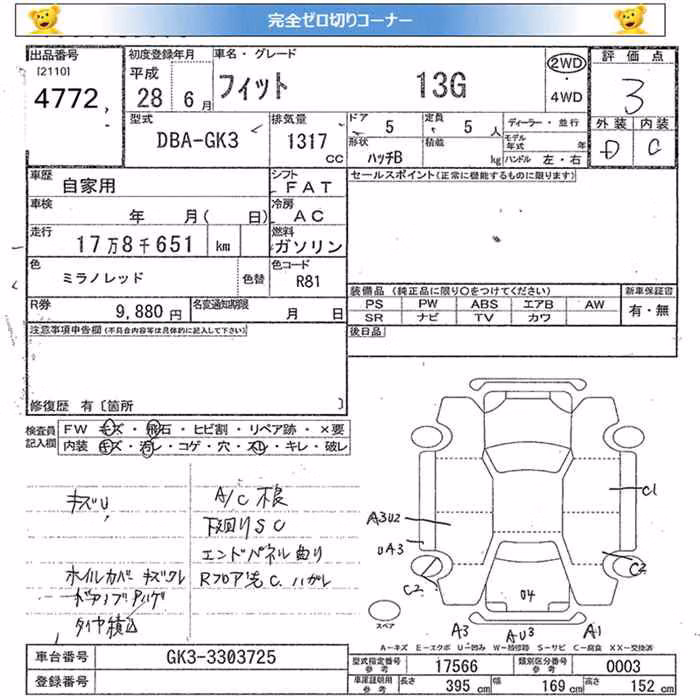 完全ゼロ切りコーナー
出品番号 初度登録年月 車名・グレード 評価点
[2110] 平成 フィット 13G 2WD 3
4772 28年6月 4WD
型式 排気量 ドア 定員 ディーラー・並行 外装 内装
DBA-GK3 1317 cc 5 5人 モデル年式 年 D C
形状 積載
ハッチB kg ハンドル 左・右
車歴 自家用 シフト FAT セールスポイント(正常に機能するものに限ります)
車検 年 月( 日) 冷房 AC
走行 17万8千651 km 燃料 ガソリン
色 ミラノレッド 色替 色コード R81
装備品 (純正品に限り○をつけてください) 新車保証書
R券 9,880円 名変通知期限 月 日 PS PW ABS エアB AW 有・無
SR ナビ TV カワ
注意事項申告欄(不具合内容等は具体的に記入して下さい) 後日品
修復歴 有〔箇所 〕
検査員記入欄 FW キズ・飛石・ヒビ割・リペア跡・×要
内装 キズ・汚レ・コゲ・穴・スレ・キレ・破レ
キズU
A/C不良
下廻りSC
エンドパネル曲り
ホイルカバーキズクレ Rフロア先C.ハガレ
タイヤ積込
C1
A3U2
UA3
C2
C2
U4
スペア
A3 AU3 A1
A-キズ E-エクボ U-凹み W-補修跡 S-サビ C-腐食 XX-交換済
車台番号 GK3-3303725 型式指定番号 参考 17566 類別区分番号 参考 0003
登録番号 車庫証明用 参考 長さ 395cm 幅 169cm 高さ 152cm